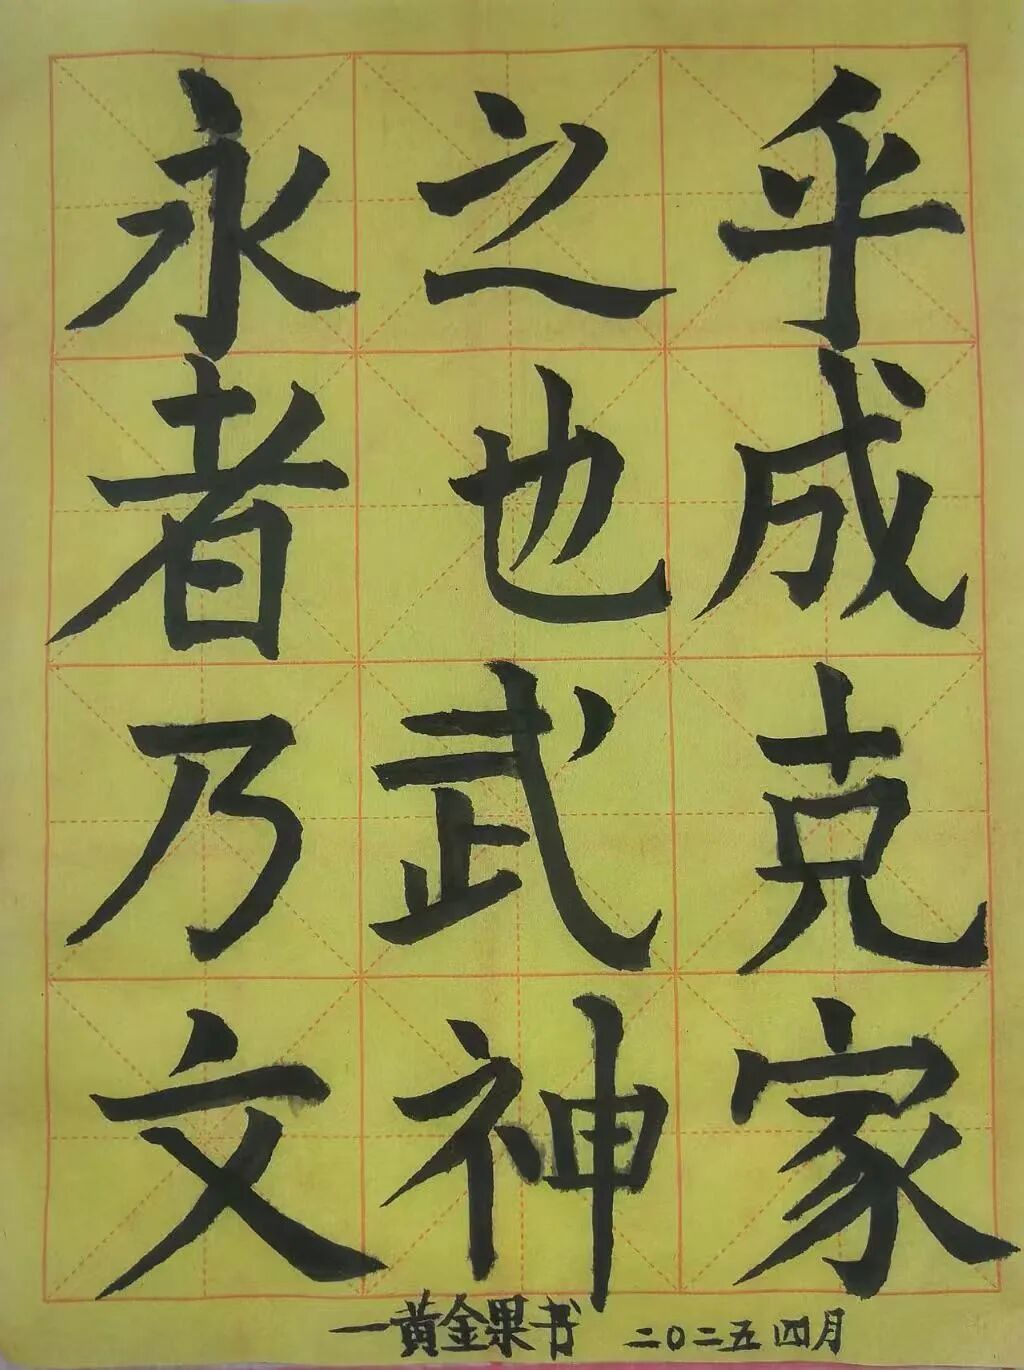 永之乎
者也成
乃武克
文神家
一黄金果书 二〇二五四月